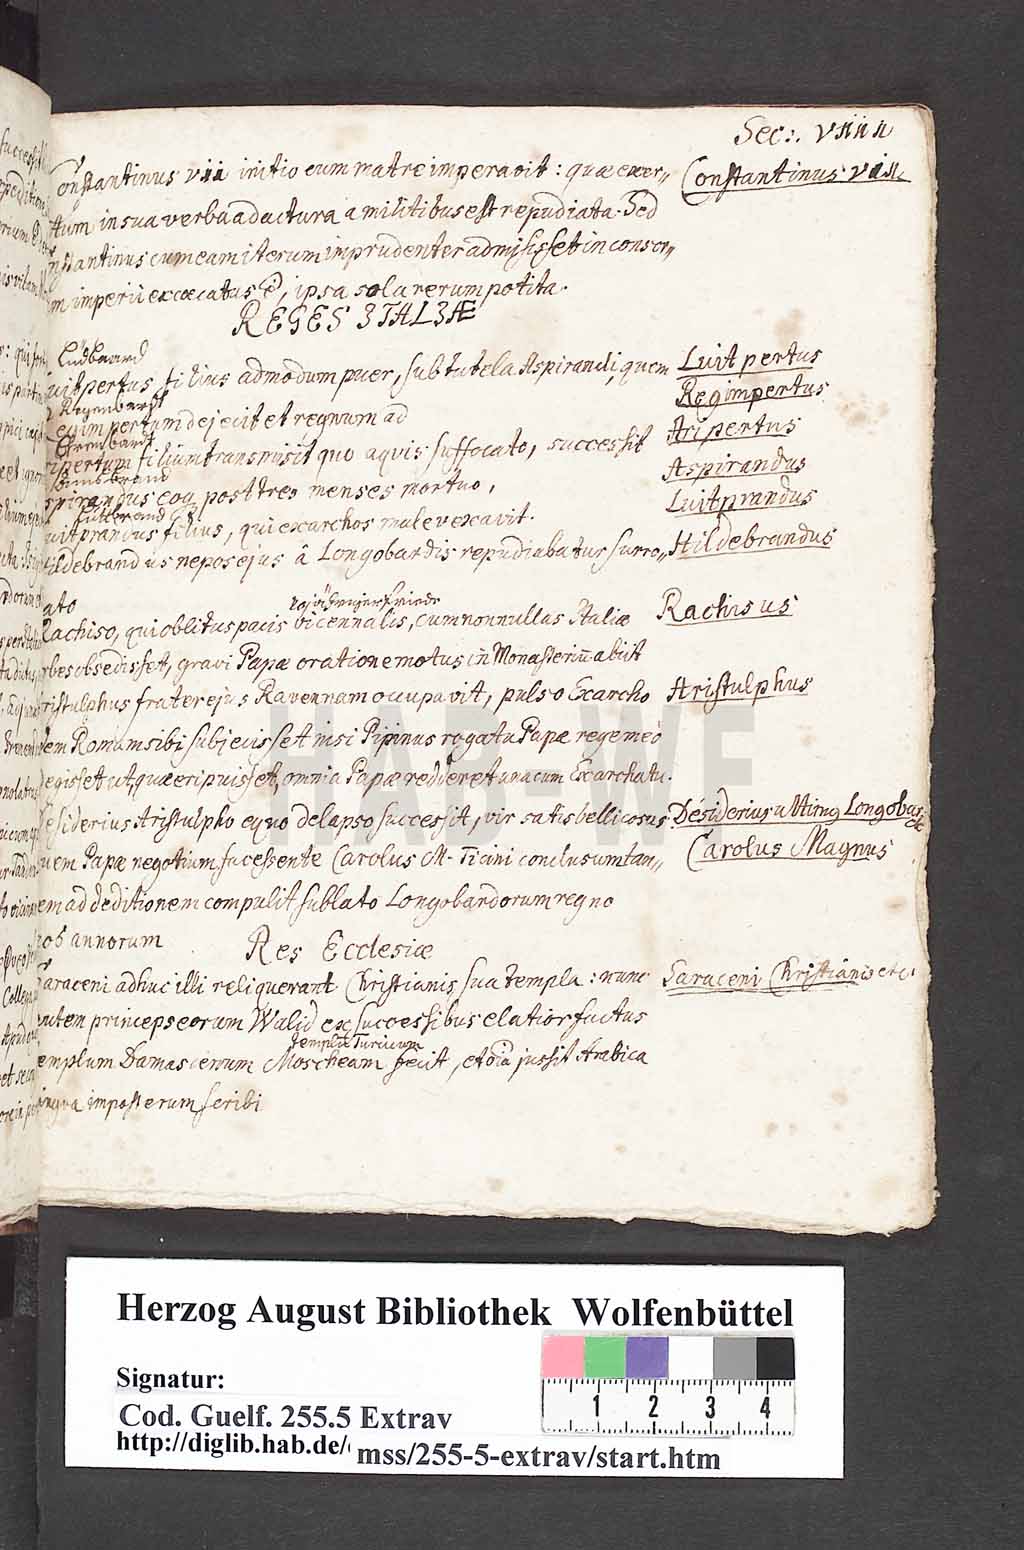 Sec:. VIIII
Constantinus VII initio cum matre imperavit: quæ exer„
Constantinus VII.
tum in sua verba adactura a militibus est repudiata. Sed
nstantinus cum eam iterum imprudenter admisisset in consor„
m imperii excœcatus ē, ipsa sola rerum potita.
REGES ITALIÆ
Ludbaard
uitpertus filius admodum puer, sub tutela Aspirandi, quem
Luitpertus
Regenbardt
egimpertum dejecit et regnum ad
Regimpertus
Ehrenbardt
ripertum filium transmisit quo aquis suffocato, successit
Aripertus
brand
spirandus eoq post tres menses mortuo,
Aspirandus
Luitbrand
uitprandus filius, qui exarchos male vexavit.
Luitprandus
ildebrandus nepos ejus â Longobardis repudiabatur surro„
Hildebrandus
ato
20 jähriger friede
Rachiso, qui oblitus pacis vicennalis, cum nonnullas Italiæ
Rachisus
rbes obsedisset, gravi Papæ oratione motus in Monasteriū abiit
ristulphus frater ejus Ravennam occupavit, pulso Exarcho
Aristulphus
dem Romam sibi subjecisset nisi Pipinus rogatu Papæ regem eo
degisset ut, quæ eripuisset, omnia Papæ redderet una cum Exarchatu.
Desiderius Aristulpho equo delapso successit, vir satis bellicosus
Desiderius ultimus Longobar„
quem Papæ negotium facessente Carolus M. Ticini conclusum tan„
Carolus Magnus
em ad deditionem compulit sublato Longobardorum regno
206 annorum
Res Ecclesiæ
Saraceni adhuc illi reliquerant Christianis sua templa: nunc
Saraceni Christianis etc.
autem princeps eorum Walid ex successibus elatior factus
templū Turcicum
templum Damascenum Moscheam fecit, et oīa jussit Arabica
lingva imposterum scribi
HAB-WF
Herzog August Bibliothek Wolfenbüttel
Signatur:
Cod. Guelf. 255.5 Extrav
http://diglib.hab.de/
mss/255-5-extrav/start.htm
1 2 3 4